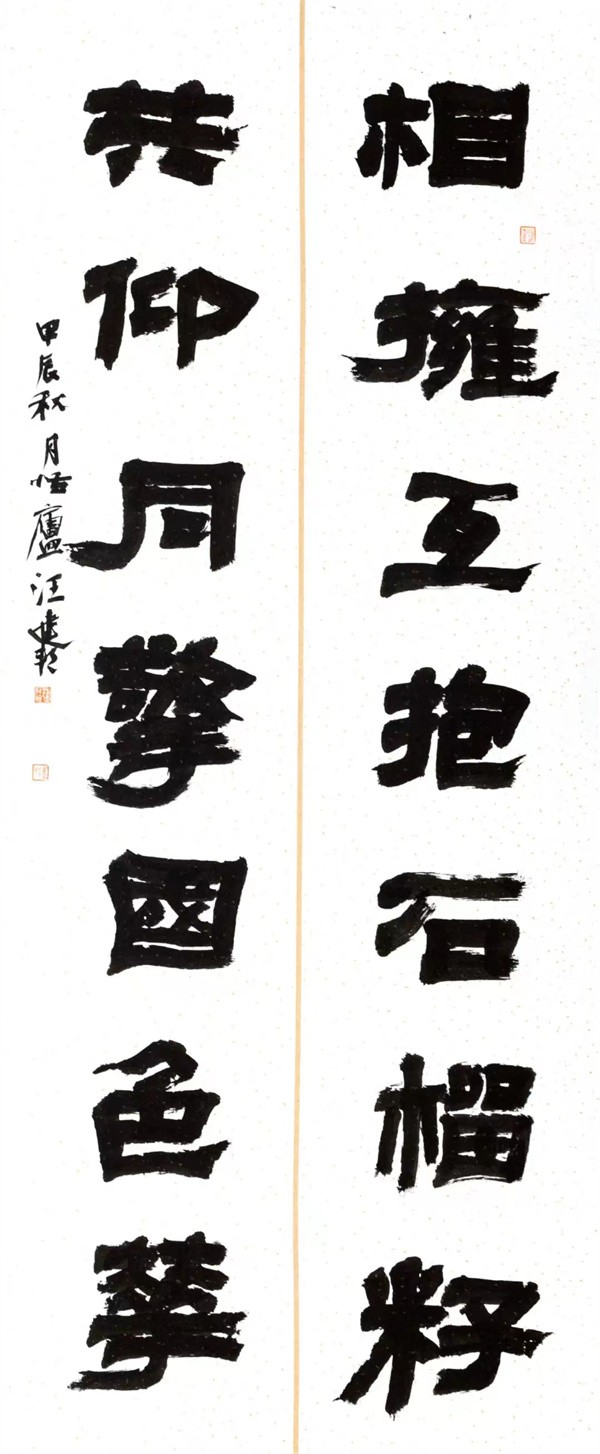 相擁互抱石榴籽
共仰同擎國色華
甲辰秋月恬廬汪建